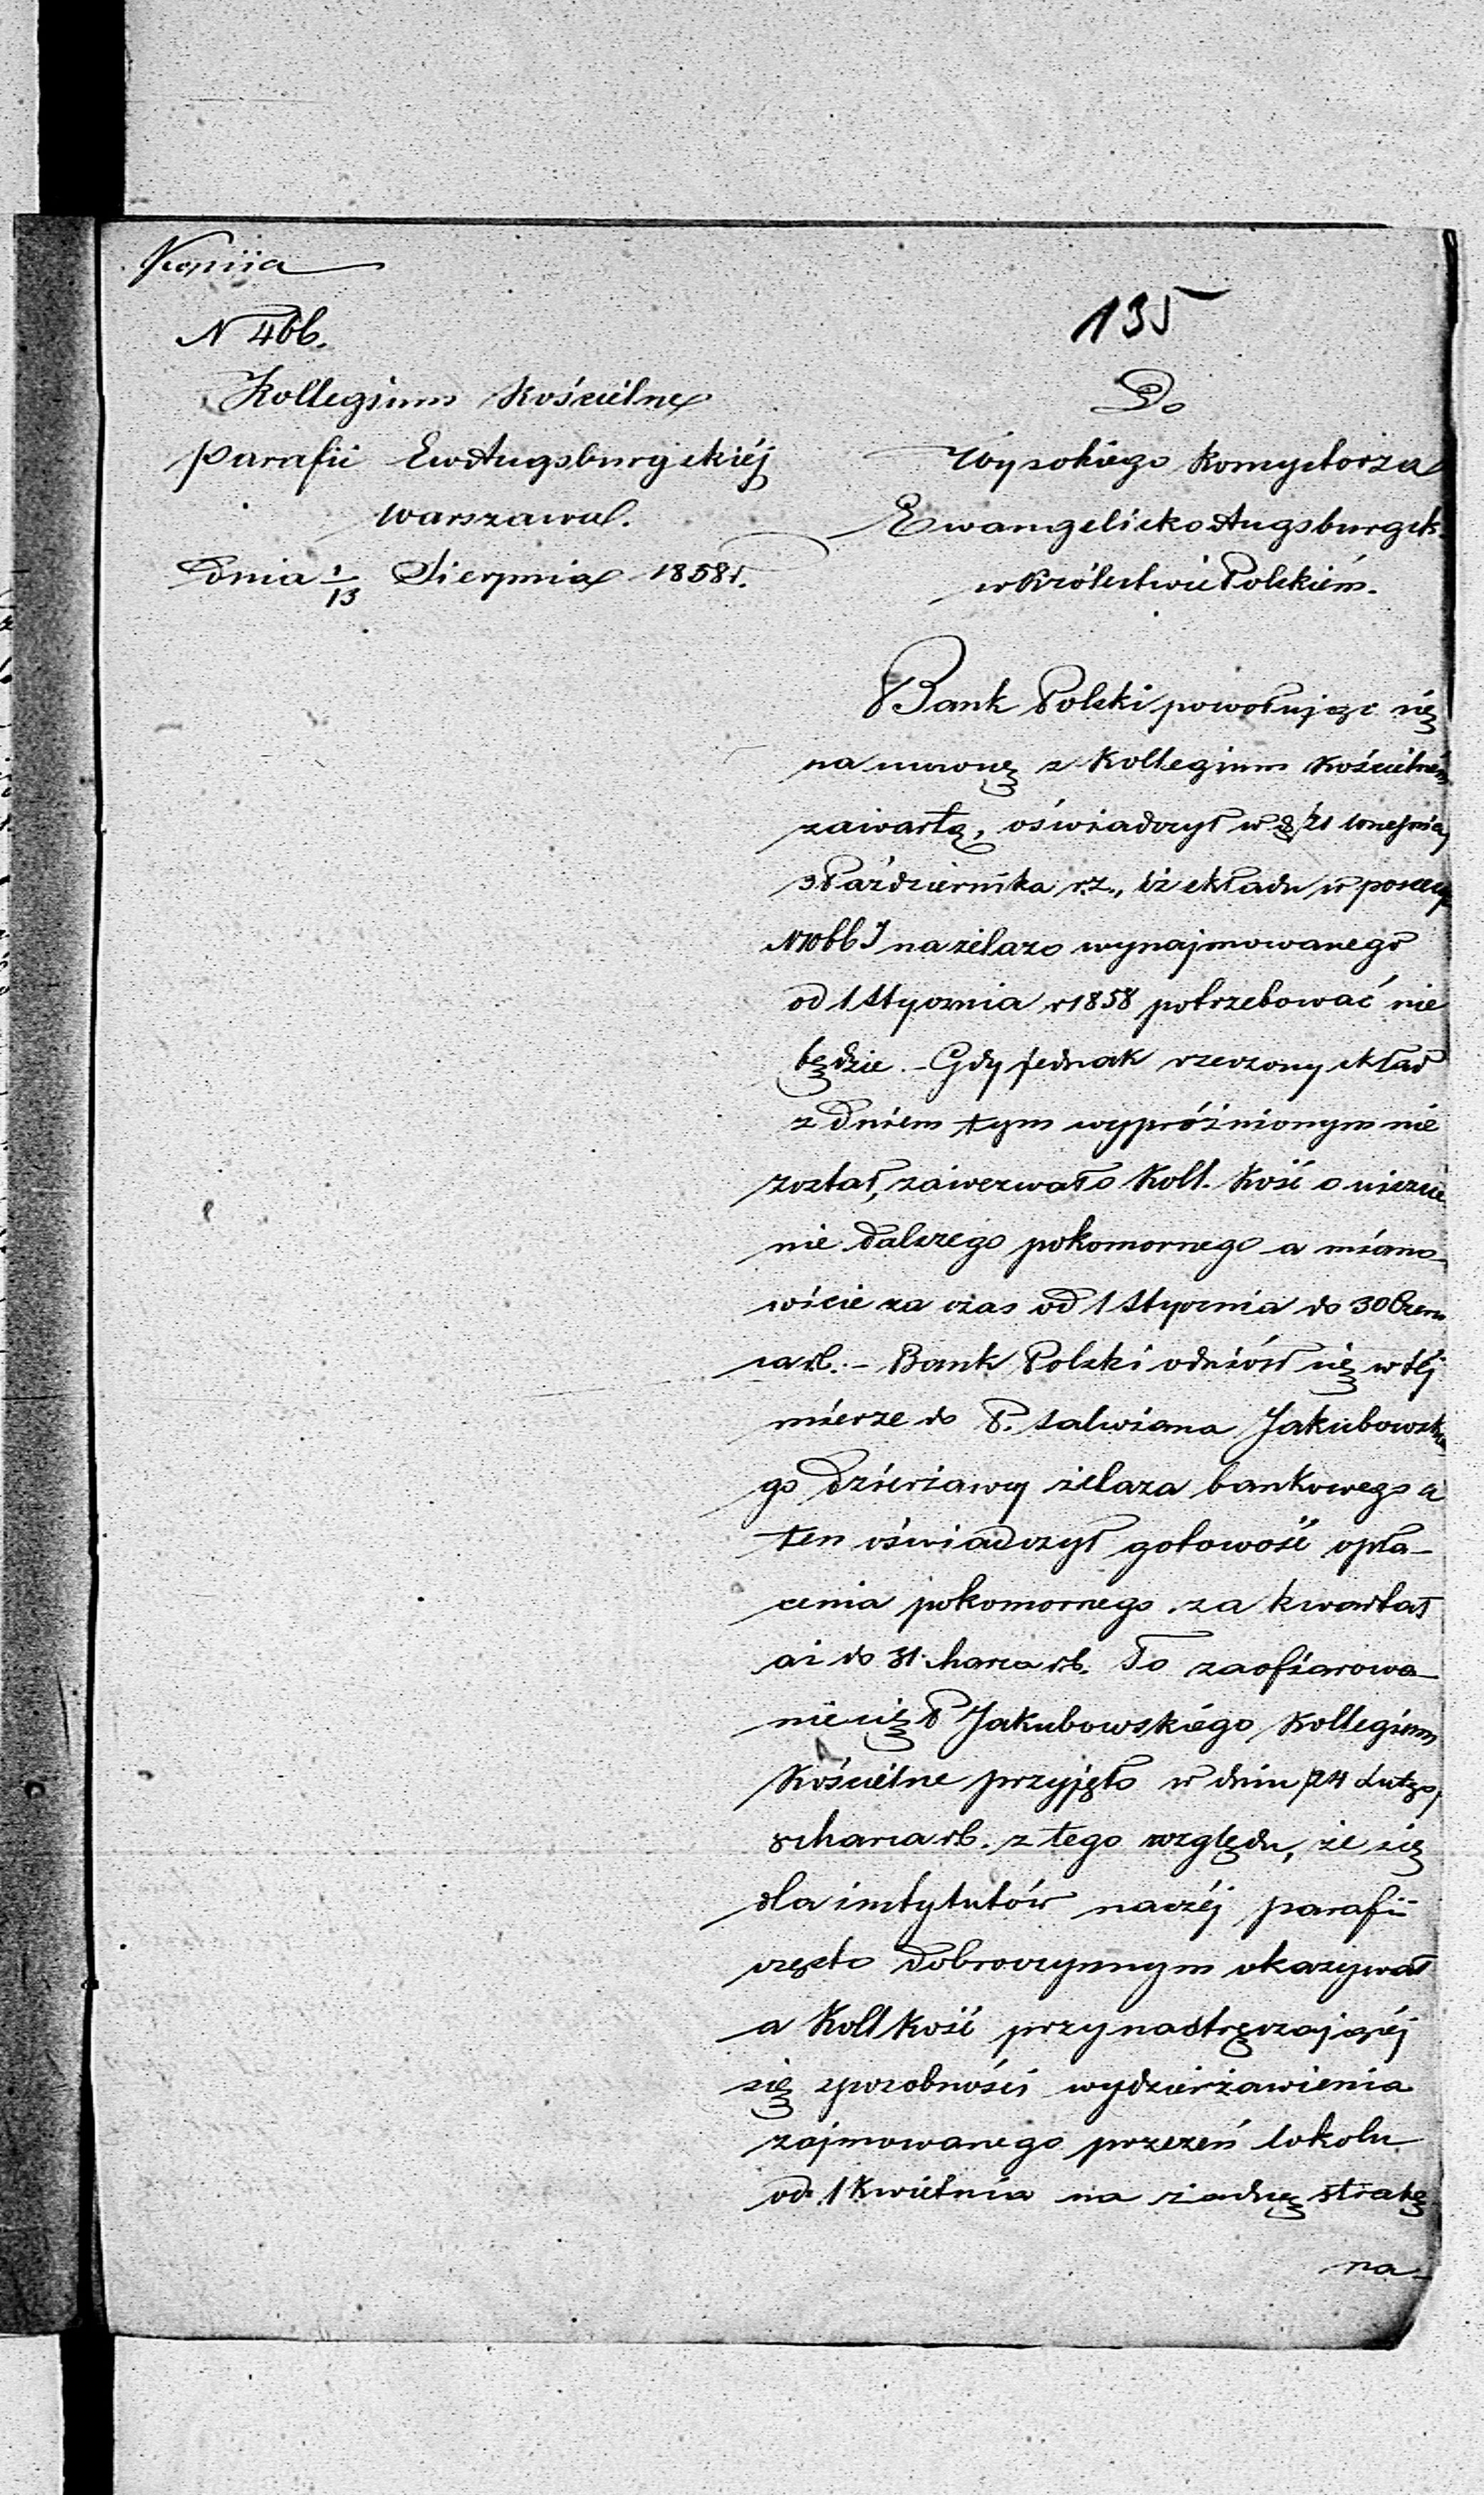 Kopiia
N 466.
Kollegium Kościelne
Parafii Ew Augsburgskiéj
Warszawa.
Dnia 1/13 Sierpnia 1858 r.
135
Do
Wysokiego Konsystorza
Ewangelicko Augsburgsk.
w Królestwie Polskiém.
Bank Polski powołując się
na umowę z Kollegium Kościelném
zawartą, oświadczył w d. 21 Września
3 Października r. z., iż składu w posesyi
N 1066 J na żelazo wynajmowanego
od 1 Stycznia r 1858 potrzebować nie
będzie. - Gdy jednak rzeczony skład
z dniem tym wypróżnionym nie
został, zawezwało Koll. Kość o uiszcze
nie dalszego pokomornego a miano-
wicie za czas od 1 Stycznia do 30 Czerw
ca r b. - Bank Polski odniósł się w téj
mierze do P. Salwiana Jakubowskie
go Dzierżawcy żelaza bankowego a
ten oświadczył gotowość opła-
cenia pokomornego za kwartał
aż do 31 Marca r b. To zaofiarowa-
nie się P Jakubowskiego Kollegium
Kościelne przyjęło w dniu 24 Lutego
8 Marca r b. z tego względu, że się
dla instytutów naszéj parafii
często dobroczynnym okazywał
a Koll Kość przy nastręczającéj
się sposobności wydzierżawienia
zajmowanego przezeń lokalu
od 1 Kwietnia na żadną stratę
na-